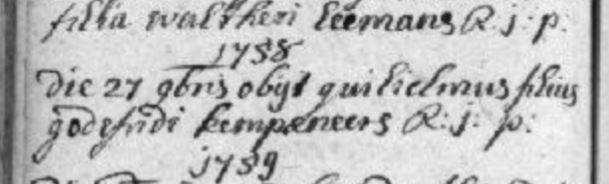 filia waltheri leemans R: j: p:
1758
die 27 gbris obijt guilielmus filius
godefridi kempeneers R: j: p:
1759